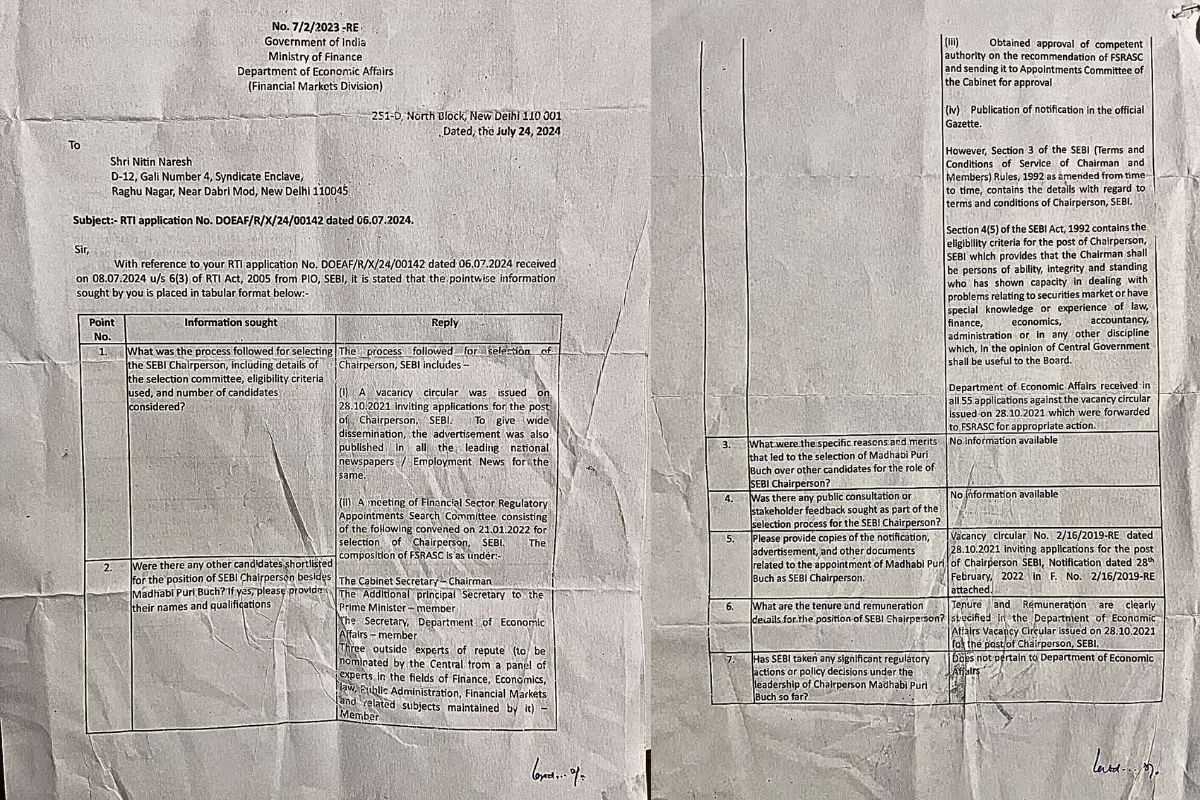 No. 7/2/2023 -RE
Government of India
Ministry of Finance
Department of Economic Affairs
(Financial Markets Division)
251-D, North Block, New Delhi 110 001
Dated, the July 24, 2024
To
Shri Nitin Naresh
D-12, Gali Number 4, Syndicate Enclave,
Raghu Nagar, Near Dabri Mod, New Delhi 110045
Subject:- RTI application No. DOEAF/R/X/24/00142 dated 06.07.2024.
Sir,
With reference to your RTI application No. DOEAF/R/X/24/00142 dated 06.07.2024 received
on 08.07.2024 u/s 6(3) of RTI Act, 2005 from PIO, SEBI, it is stated that the pointwise information
sought by you is placed in tabular format below:-
Point
No.
Information sought
Reply
1.
What was the process followed for selecting
the SEBI Chairperson, including details of
the selection committee, eligibility criteria
used, and number of candidates
considered?
The process followed for selection of
Chairperson, SEBI includes –
(i) A vacancy circular was issued on
28.10.2021 inviting applications for the post
of Chairperson, SEBI. To give wide
dissemination, the advertisement was also
published in all the leading national
newspapers / Employment News for the
same.
(ii) A meeting of Financial Sector Regulatory
Appointments Search Committee consisting
of the following convened on 21.01.2022 for
selection of Chairperson, SEBI. The
composition of FSRASC is as under:-
2.
Were there any other candidates shortlisted
for the position of SEBI Chairperson besides
Madhabi Puri Buch? If yes, please provide
their names and qualifications
The Cabinet Secretary – Chairman
The Additional principal Secretary to the
Prime Minister – member
The Secretary, Department of Economic
Affairs – member
Three outside experts of repute (to be
nominated by the Central from a panel of
experts in the fields of Finance, Economics,
law, Public Administration, Financial Markets
and related subjects maintained by it) –
Member
(iii) Obtained approval of competent
authority on the recommendation of FSRASC
and sending it to Appointments Committee of
the Cabinet for approval
(iv) Publication of notification in the official
Gazette.
However, Section 3 of the SEBI (Terms and
Conditions of Service of Chairman and
Members) Rules, 1992 as amended from time
to time, contains the details with regard to
terms and conditions of Chairperson, SEBI.
Section 4(5) of the SEBI Act, 1992 contains the
eligibility criteria for the post of Chairperson,
SEBI which provides that the Chairman shall
be persons of ability, integrity and standing
who has shown capacity in dealing with
problems relating to securities market or have
special knowledge or experience of law,
finance, economics, accountancy,
administration or in any other discipline
which, in the opinion of Central Government
shall be useful to the Board.
Department of Economic Affairs received in
all 55 applications against the vacancy circular
issued on 28.10.2021 which were forwarded
to FSRASC for appropriate action.
3.
What were the specific reasons and merits
that led to the selection of Madhabi Puri
Buch over other candidates for the role of
SEBI Chairperson?
No information available
4.
Was there any public consultation or
stakeholder feedback sought as part of the
selection process for the SEBI Chairperson?
No information available
5.
Please provide copies of the notification,
advertisement, and other documents
related to the appointment of Madhabi Puri
Buch as SEBI Chairperson.
Vacancy circular No. 2/16/2019-RE dated
28.10.2021 inviting applications for the post
of Chairperson SEBI, Notification dated 28th
February, 2022 in F. No. 2/16/2019-RE
attached.
6.
What are the tenure and remuneration
details for the position of SEBI Chairperson?
Tenure and Remuneration are clearly
specified in the Department of Economic
Affairs Vacancy Circular issued on 28.10.2021
for the post of Chairperson, SEBI.
7.
Has SEBI taken any significant regulatory
actions or policy decisions under the
leadership of Chairperson Madhabi Puri
Buch so far?
Does not pertain to Department of Economic
Affairs